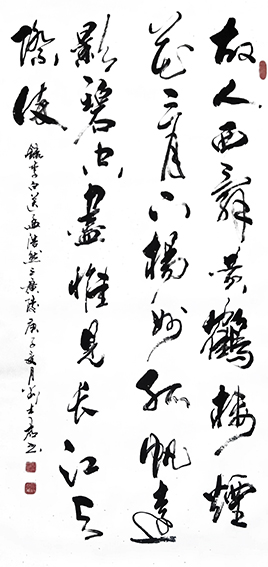 故人西辭黃鶴樓煙
花三月下揚州孤帆遠
影碧空盡惟見长江天
際流
錄李白送孟浩然之廣陵庚子夏月